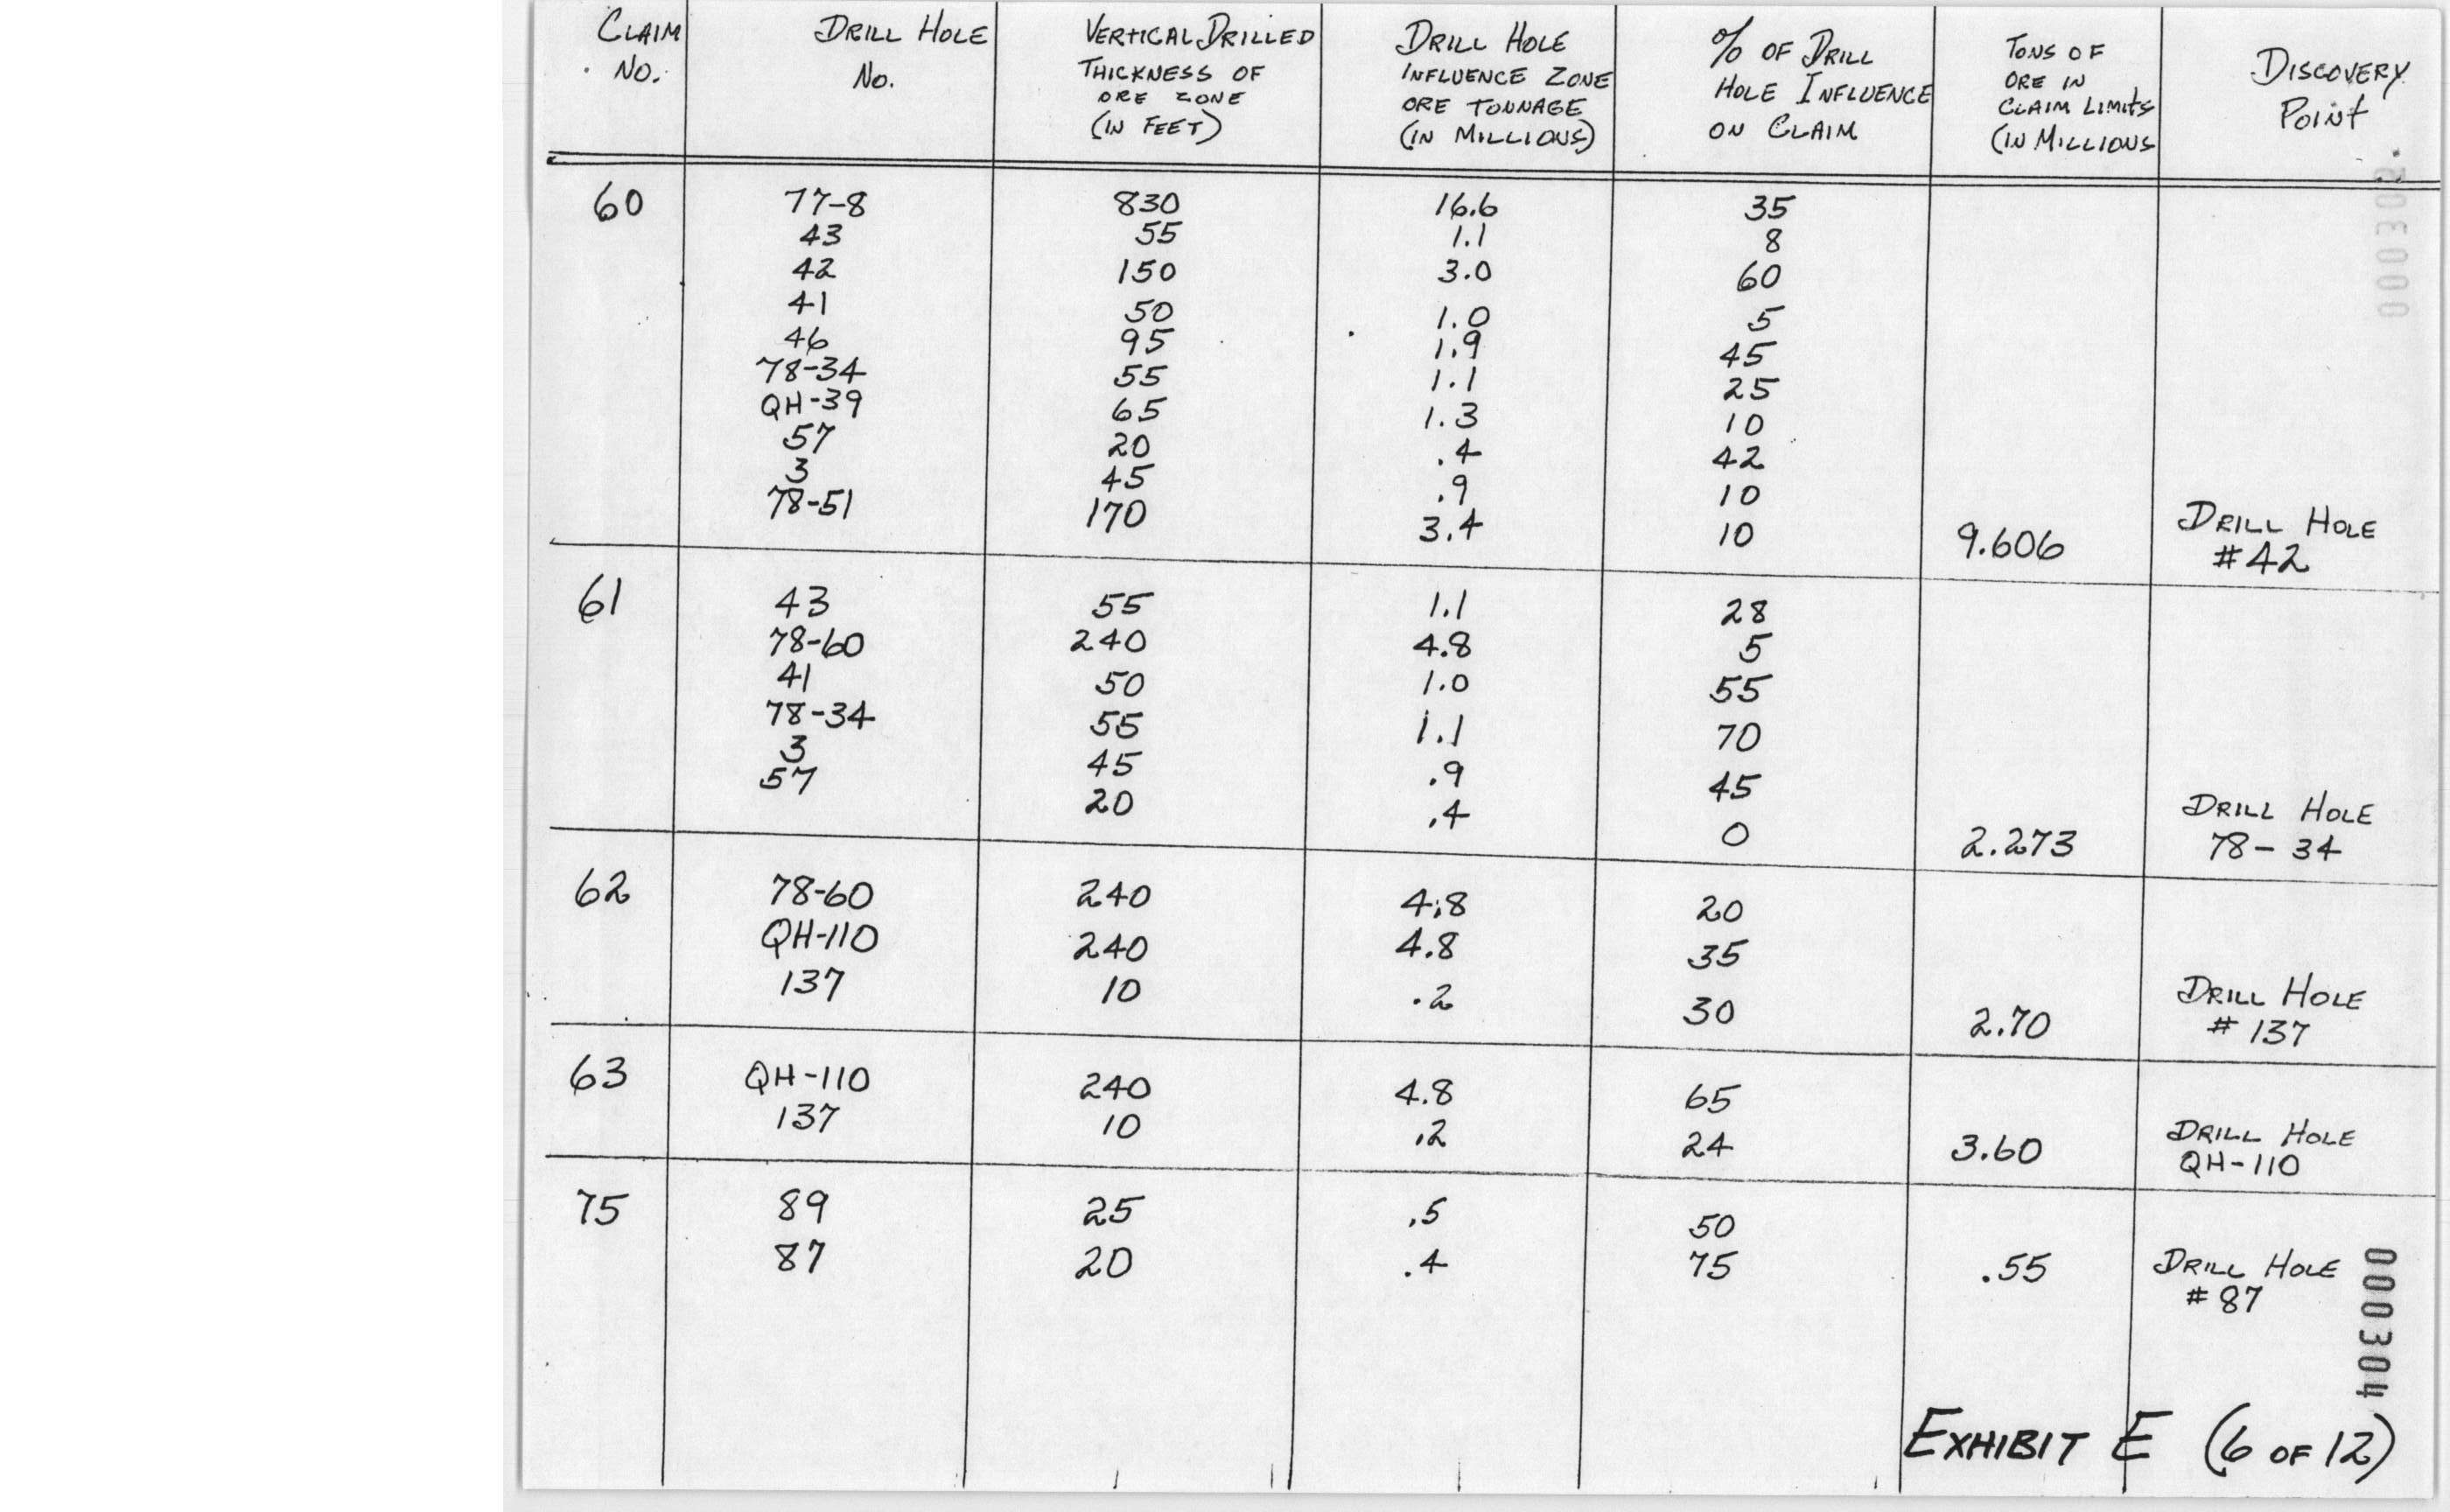 CLAIM NO. | DRILL HOLE NO. | VERTICAL DRILLED THICKNESS OF ORE ZONE (IN FEET) | DRILL HOLE INFLUENCE ZONE ORE TONNAGE (IN MILLIONS) | % OF DRILL HOLE INFLUENCE ON CLAIM | TONS OF ORE IN CLAIM LIMITS (IN MILLIONS | DISCOVERY POINT
60 77-8 830 16.6 35
43 55 1.1 8
42 150 3.0 60
41 50 1.0 5
46 95 1.9 45
78-34 55 1.1 25
QH-39 65 1.3 10
57 20 .4 42
3 45 .9 10
78-51 170 3.4 10 9.606 DRILL HOLE #42
61 43 55 1.1 28
78-60 240 4.8 5
41 50 1.0 55
78-34 55 1.1 70
3 45 .9 45
57 20 .4 0 2.273 DRILL HOLE 78-34
62 78-60 240 4.8 20
QH-110 240 4.8 35
137 10 .2 30 2.70 DRILL HOLE # 137
63 QH-110 240 4.8 65
137 10 .2 24 3.60 DRILL HOLE QH-110
75 89 25 .5 50
87 20 .4 75 .55 DRILL HOLE # 87
000304
EXHIBIT E (6 OF 12)